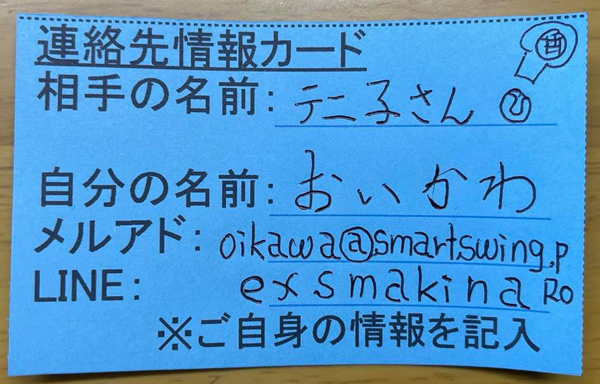 連絡先情報カード
相手の名前: テニ子さん
自分の名前: おいかわ
メルアド: oikawa@smartswing.p
LINE: exsmakina RO
※ご自身の情報を記入